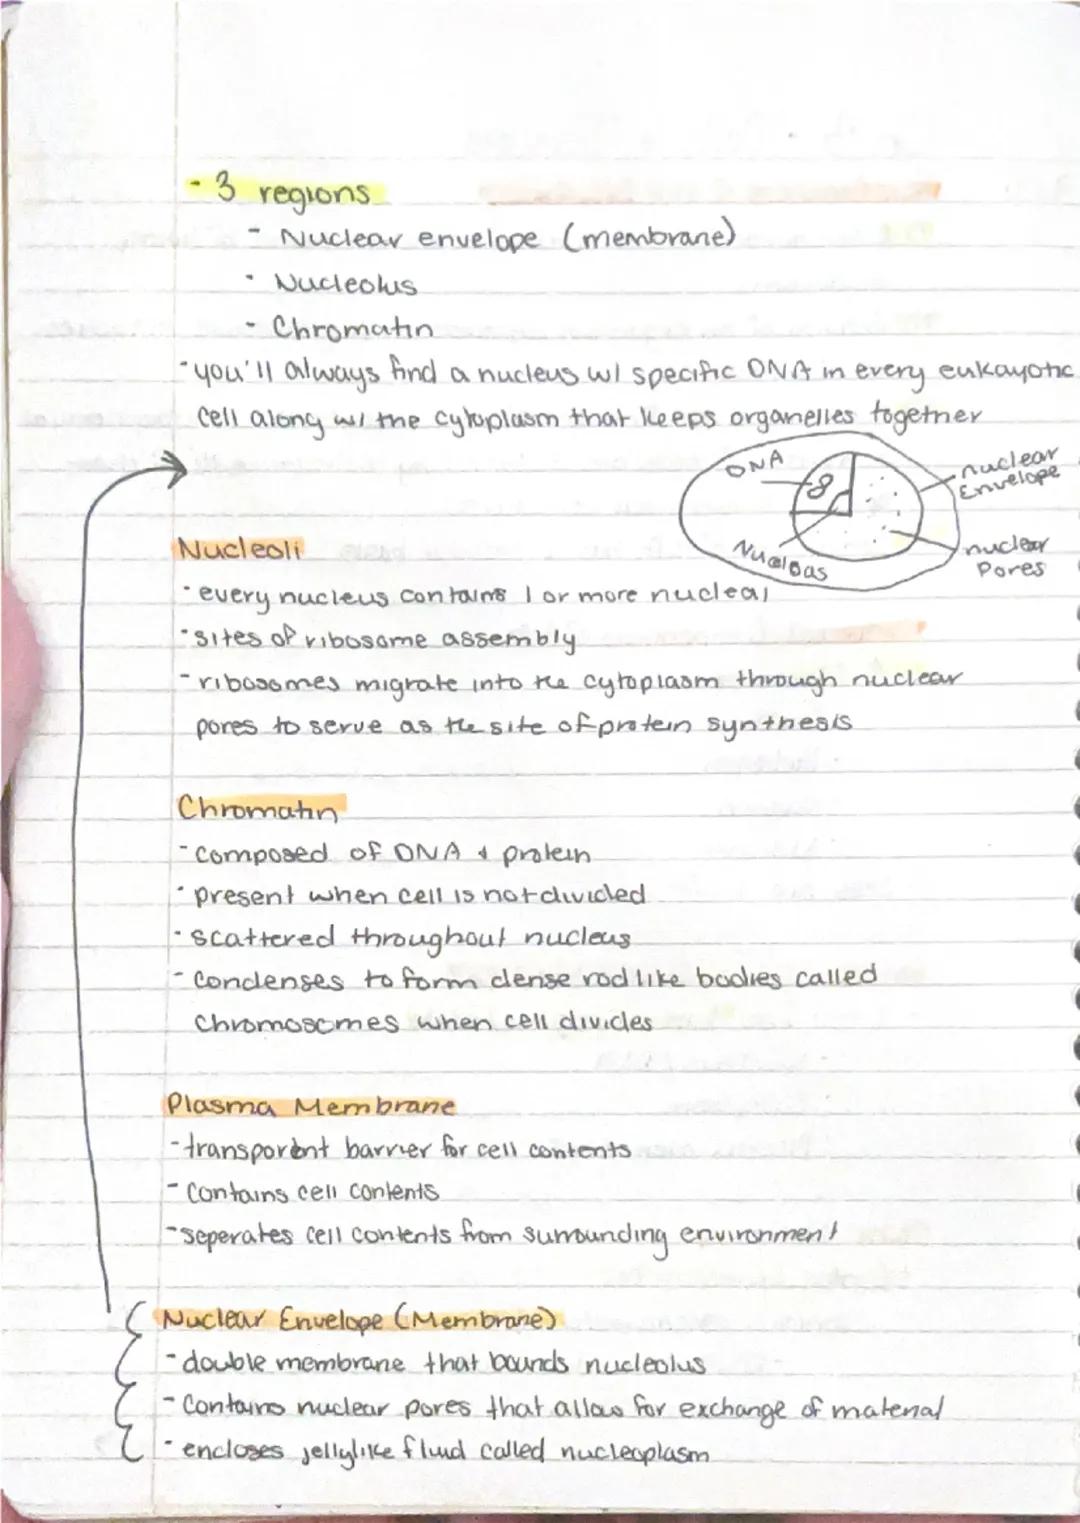 - 3 regions
- Nuclear envelope (membrane)
- Nucleolus
- Chromatin
- you'll always find a nucleus w/ specific DNA in every eukayotic
cell along w/ the cytoplasm that keeps organelles together
DNA
nuclear
Envelope
nuclear
Pores
Nucleoli
- every nucleus contains 1 or more nucleoi
- sites of ribosome assembly
- ribosomes migrate into the cytoplasm through nuclear
pores to serve as the site of protein synthesis
Chromatin
- composed of DNA & protein
- present when cell is not divided
- scattered throughout nucleus
- condenses to form dense rodlike bodies called
chromosomes when cell divides
Plasma Membrane
- transparent barrier for cell contents
- contains cell contents
- seperates cell contents from surrounding environment
Nuclear Envelope (Membrane)
- double membrane that bounds nucleolus
- contains nuclear pores that allow for exchange of material
- encloses jellylike fluid called nucleoplasm